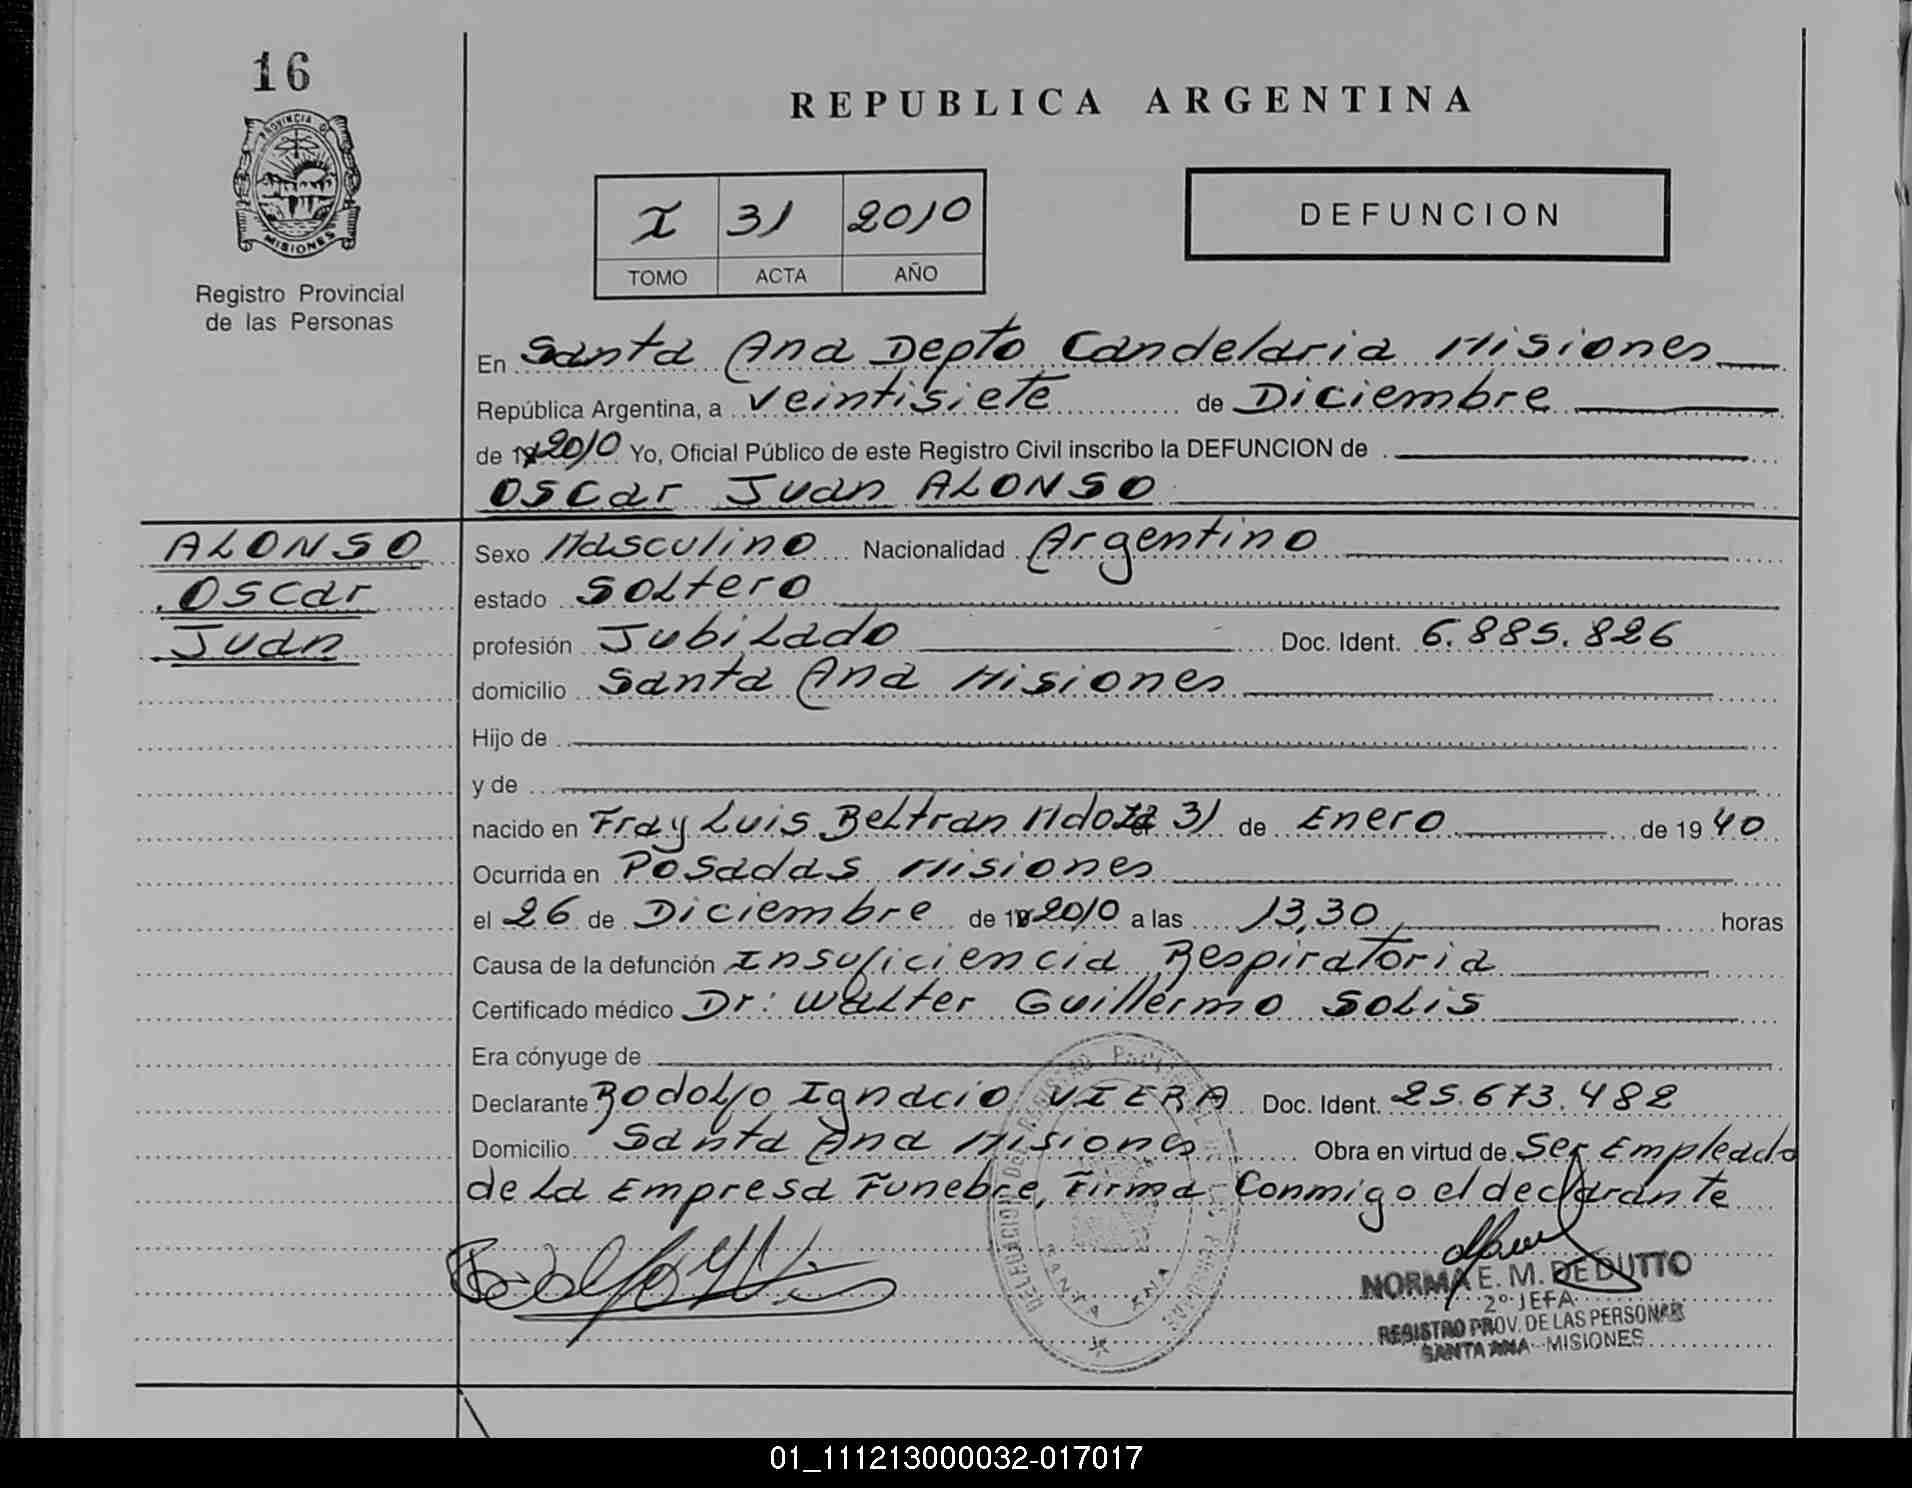 16
PROVINCIA DE
MISIONES
Registro Provincial
de las Personas
REPUBLICA ARGENTINA
I 31 2010
TOMO ACTA AÑO
DEFUNCION
En Santa Ana Depto Candelaria Misiones
República Argentina, a veintisiete de Diciembre
de 2010 Yo, Oficial Público de este Registro Civil inscribo la DEFUNCION de
Oscar Juan ALONSO
ALONSO
Oscar
Juan
Sexo Masculino Nacionalidad Argentino
estado Soltero
profesión Jubilado Doc. Ident. 6.885.826
domicilio Santa Ana Misiones
Hijo de
y de
nacido en Fray Luis Beltran Mdoza 31 de Enero de 1940
Ocurrida en Posadas Misiones
el 26 de Diciembre de 2010 a las 13,30 horas
Causa de la defunción Insuficiencia Respiratoria
Certificado médico Dr: Walter Guillermo Solis
Era cónyuge de
Declarante Rodolfo Ignacio VIERA Doc. Ident. 25.673.482
Domicilio Santa Ana Misiones Obra en virtud de Ser Empleado
de la Empresa Funebre, Firma Conmigo el declarante
NORMA E. M. DE DUTTO
2º JEFA
REGISTRO PROV. DE LAS PERSONAS
SANTA ANA - MISIONES
SANTA ANA
01_111213000032-017017